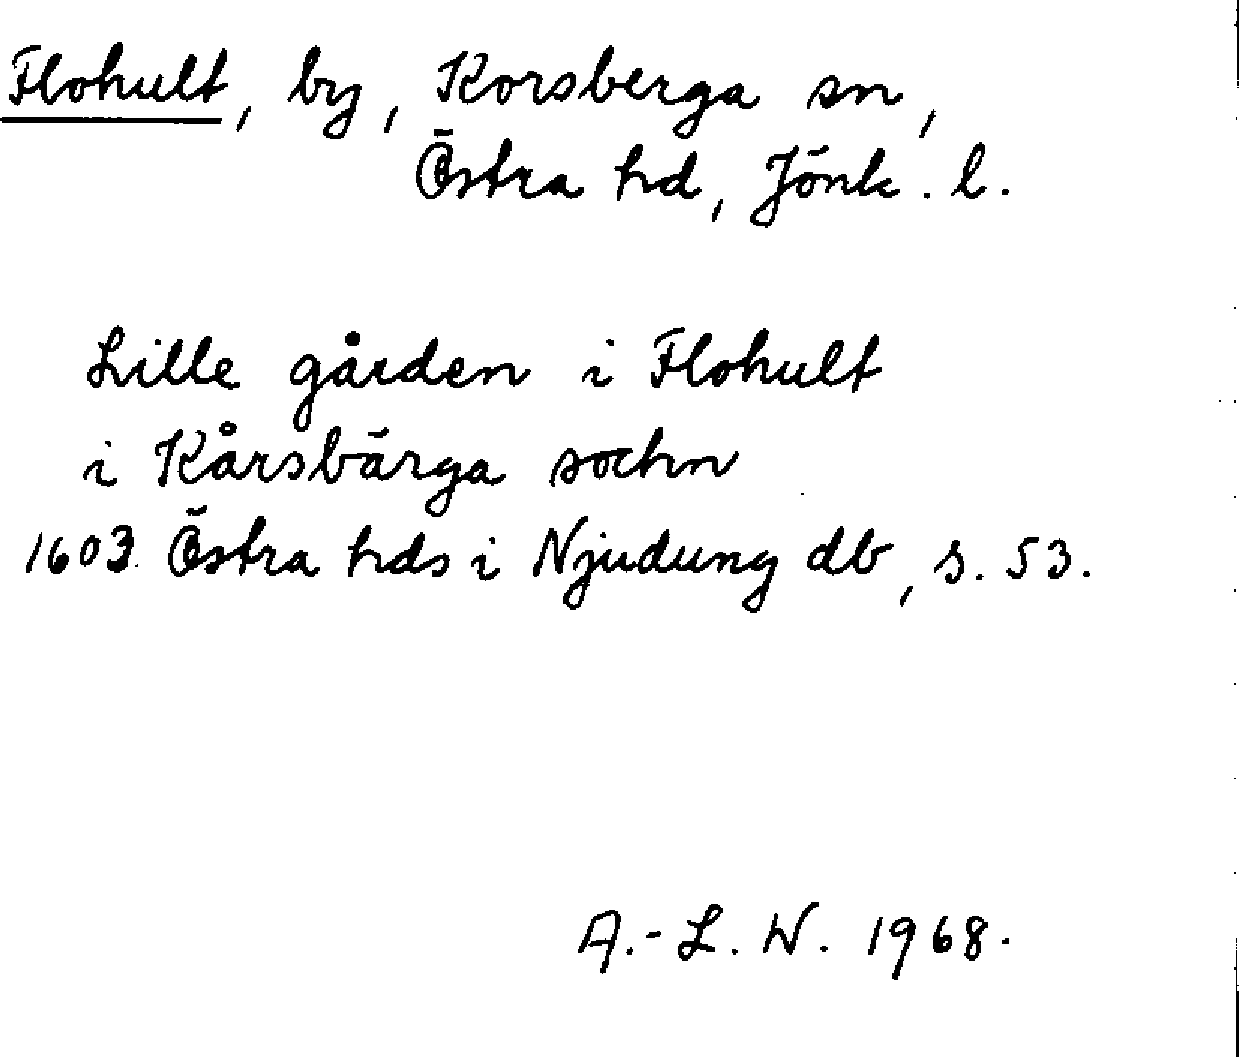 Flohult, by, Korsberga sn,
Östra hd, Jönk. l.
Lille gården i Flohult
i Kårsbärga sochn
1603 Östra hds i Njudung db, s. 53.
A.-L. W. 1968.